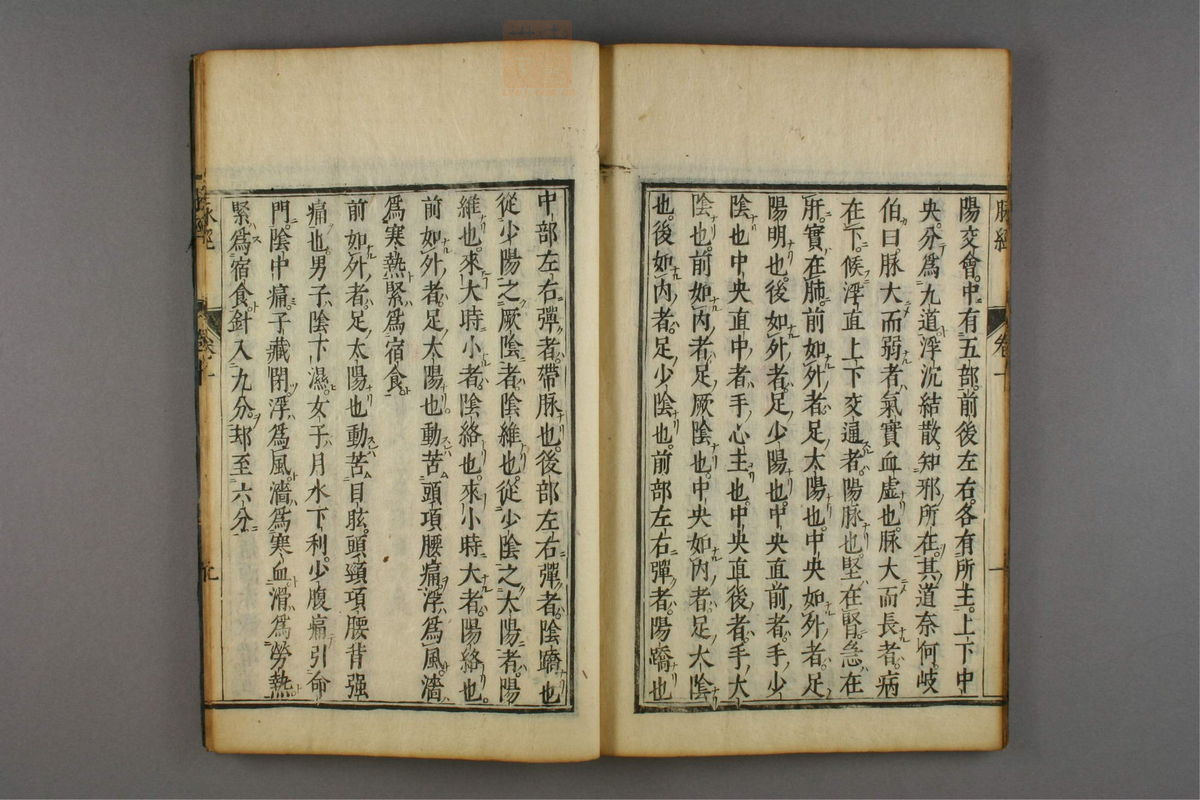 脉經 卷十 一
陽交會中有五部前後左右各有所主上下中
央分爲九道浮沉結散知邪所在其道奈何岐
伯曰脉大而弱者氣實血虛也脉大而長者病
在下候浮直上下交通者陽脉也堅在腎急在
肝實在肺前如外者足太陽也中央如外者足
陽明也後如外者足少陽也中央直前者手少
陰也中央直中者手心主也中央直後者手大
陰也前如内者足厥陰也中央如内者足大陰
也後如内者足少陰也前部左右彈者陽蹻也
中部左右彈者帶脉也後部左右彈者陰蹻也
從少陽之厥陰者陰維也從少陰之太陽者陽
維也來大時小者陰絡也來小時大者陽絡也
前如外者足太陽也動苦頭項腰痛浮爲風濇
爲寒熱緊爲宿食
前如外者足太陽也動苦目眩頭頸項腰背强
痛也男子陰下濕女子月水下利少腹痛引命
門陰中痛子藏閉浮爲風濇爲寒血滑爲勞熱
緊爲宿食針入九分却至六分
脉經 卷十